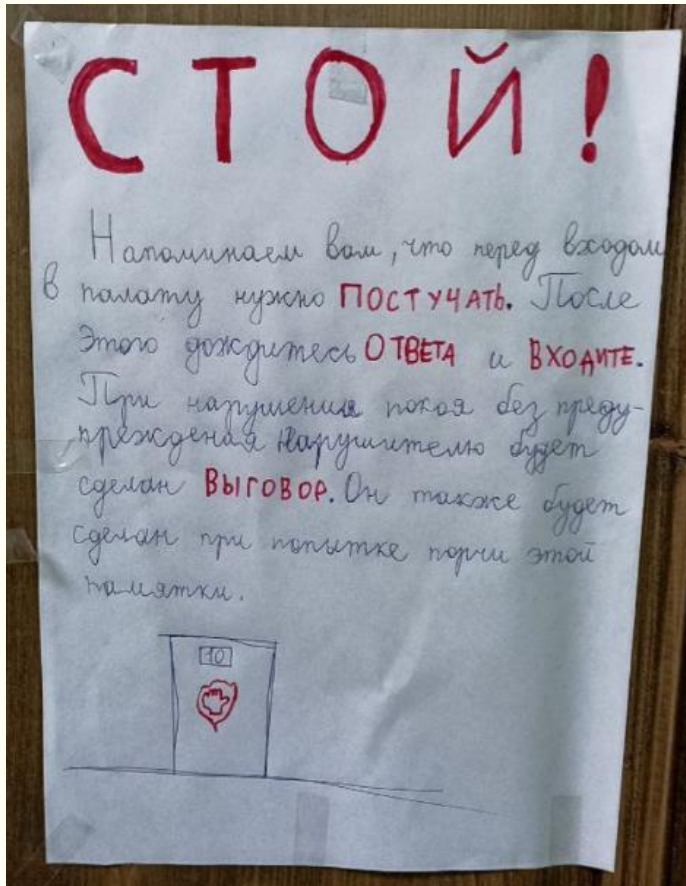 СТОЙ!
Напоминаем вам, что перед входом
в палату нужно ПОСТУЧАТЬ. После
этого дождитесь ОТВЕТА и ВХОДИТЕ.
При нарушении покоя без преду-
преждения нарушителю будет
сделан ВЫГОВОР. Он также будет
сделан при попытке порчи этой
памятки.
10